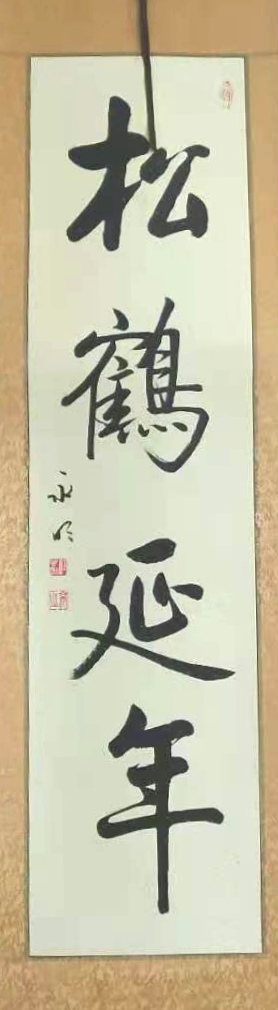 松鶴延年
永明